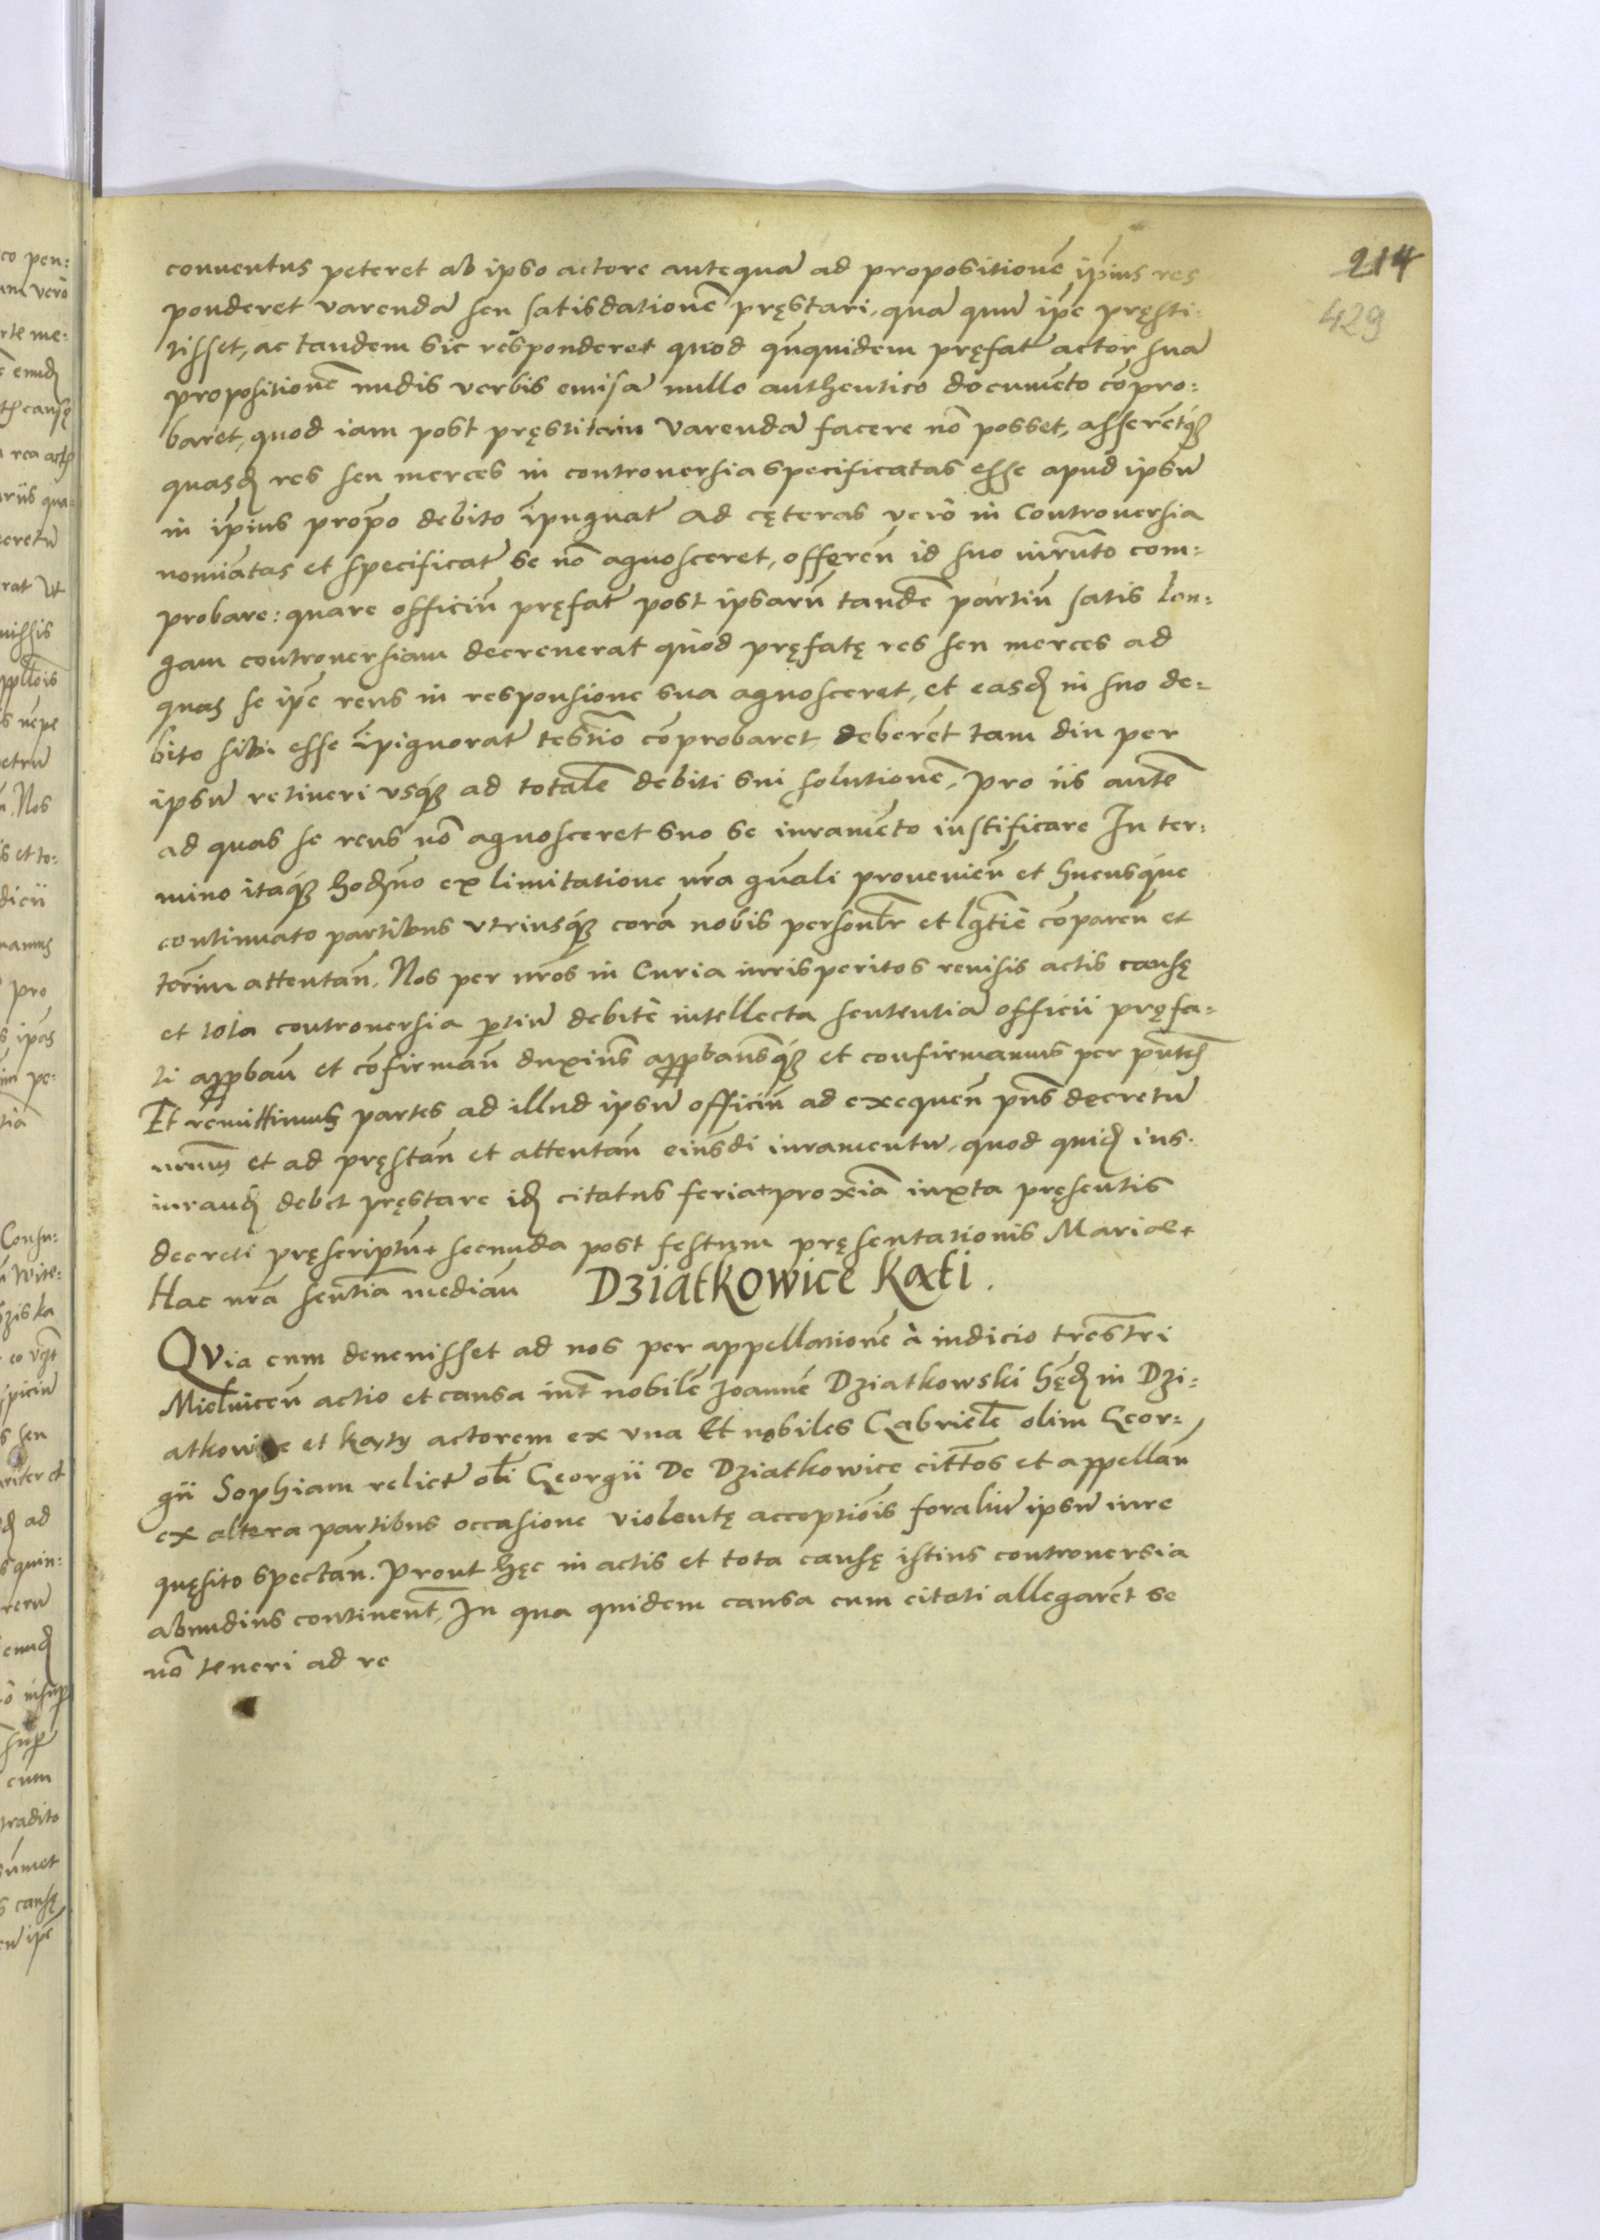 214
429
conuentus peteret ab ipso actore antequā ad propositionē ip̄ius res
ponderet varendā seu satisdationē pręstari, quā quū ip̄e pręsti:
tisset, ac tandem sic responderet quod ququidem pręfať actor suā
propositionē nudis verbis emisā nullo authentico documēto cōpro:
baret, quod iam post pręstitam varendā facere nō posset, asserētq́ȝ
quasđ res seu merces in controuersia specificatas esse apud ipsū
in ip̄ius prop̄o debito īpugnať ad cęteras verò in Controuersia
nomiātas et specificať se nō agnosceret, offereñ id suo iurāto com:
probare: quare officiū pręfať post ipsarū tandē partiū satis lon:
gam controuersiam decreuerat quòd pręfatę res seu merces ad
quas se ip̄e reus in responsione sua agnosceret, et easđ in suo de:
bito sibi esse īpignorať testīo cōprobaret, deberēt tam diu per
ipsū retineri vsq́ȝ ad totalē debiti sui solutionē, Pro iis autē
ad quas se reus nō agnosceret suo se iuramēto iustificare In ter:
mino itaq́ȝ hođno ex limitatione nr̄a gn̄ali prouenieñ et hucusq́ue
continuato partibus vtriusq́ȝ corā nobis personlr̄ et lḡtiè cōpareñ et
terīm attentañ. Nos per nr̄os in Curia iurisperitos reuisis actis causę
et tota controuersia ꝑtiū debitè intellecta sententiā officii pręfa:
ti apꝓbañ et cōfirmañ duxim̄s apꝓbamusq́ȝ et confirmamus per pn̄tes
Et remittimus partes ad illud ipsū officiū ad exequeñ pn̄s decretū
nr̄um et ad pręstañ et attentañ eiusdi iuramentū, quod quiđ ius:
iuranđ debet pręstare iđ citatus feria + proxīa iuxta pręsentis
decreti pręscriptū + secunda post festum pręsentationis Mariae +
Hac nr̄a sen̄tia mediañ Dziatkowice Kati.
QVia cum deuenisset ad nos per appellationē à iudicio tr̄estri
Mielniceñ actio et causa int̄ nobilē Joannē Dziatkowski hęđ in Dzi:
atkowice et Katy actorem ex vna Et nobiles Gabrielē olim Geor:
gii Sophiam relicť oli Georgii De Dziatkowice citt̄os et appellañ
ex altera partibus occasione violentę acceptiōis foraliū ipsū iure
quęsito spectañ. Prout hęc in actis et tota causę istius controuersia
abundius continent̄, In qua quidem causa cum citati allegarēt se
nō teneri ad re